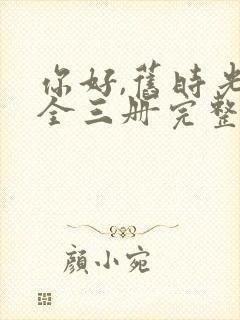 你好,舊時光
全三册完整
顔小宛